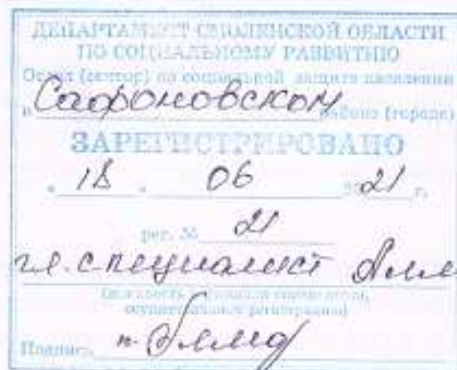 ДЕПАРТАМЕНТ СМОЛЕНСКОЙ ОБЛАСТИ
ПО СОЦИАЛЬНОМУ РАЗВИТИЮ
Отдел (сектор) по социальной защите населения
в Сафоновском районе (городе)
ЗАРЕГИСТРИРОВАНО
« 18 » 06 2021 г.
рег. № 21
гл. специалист
осуществившего регистрацию)
Подпись